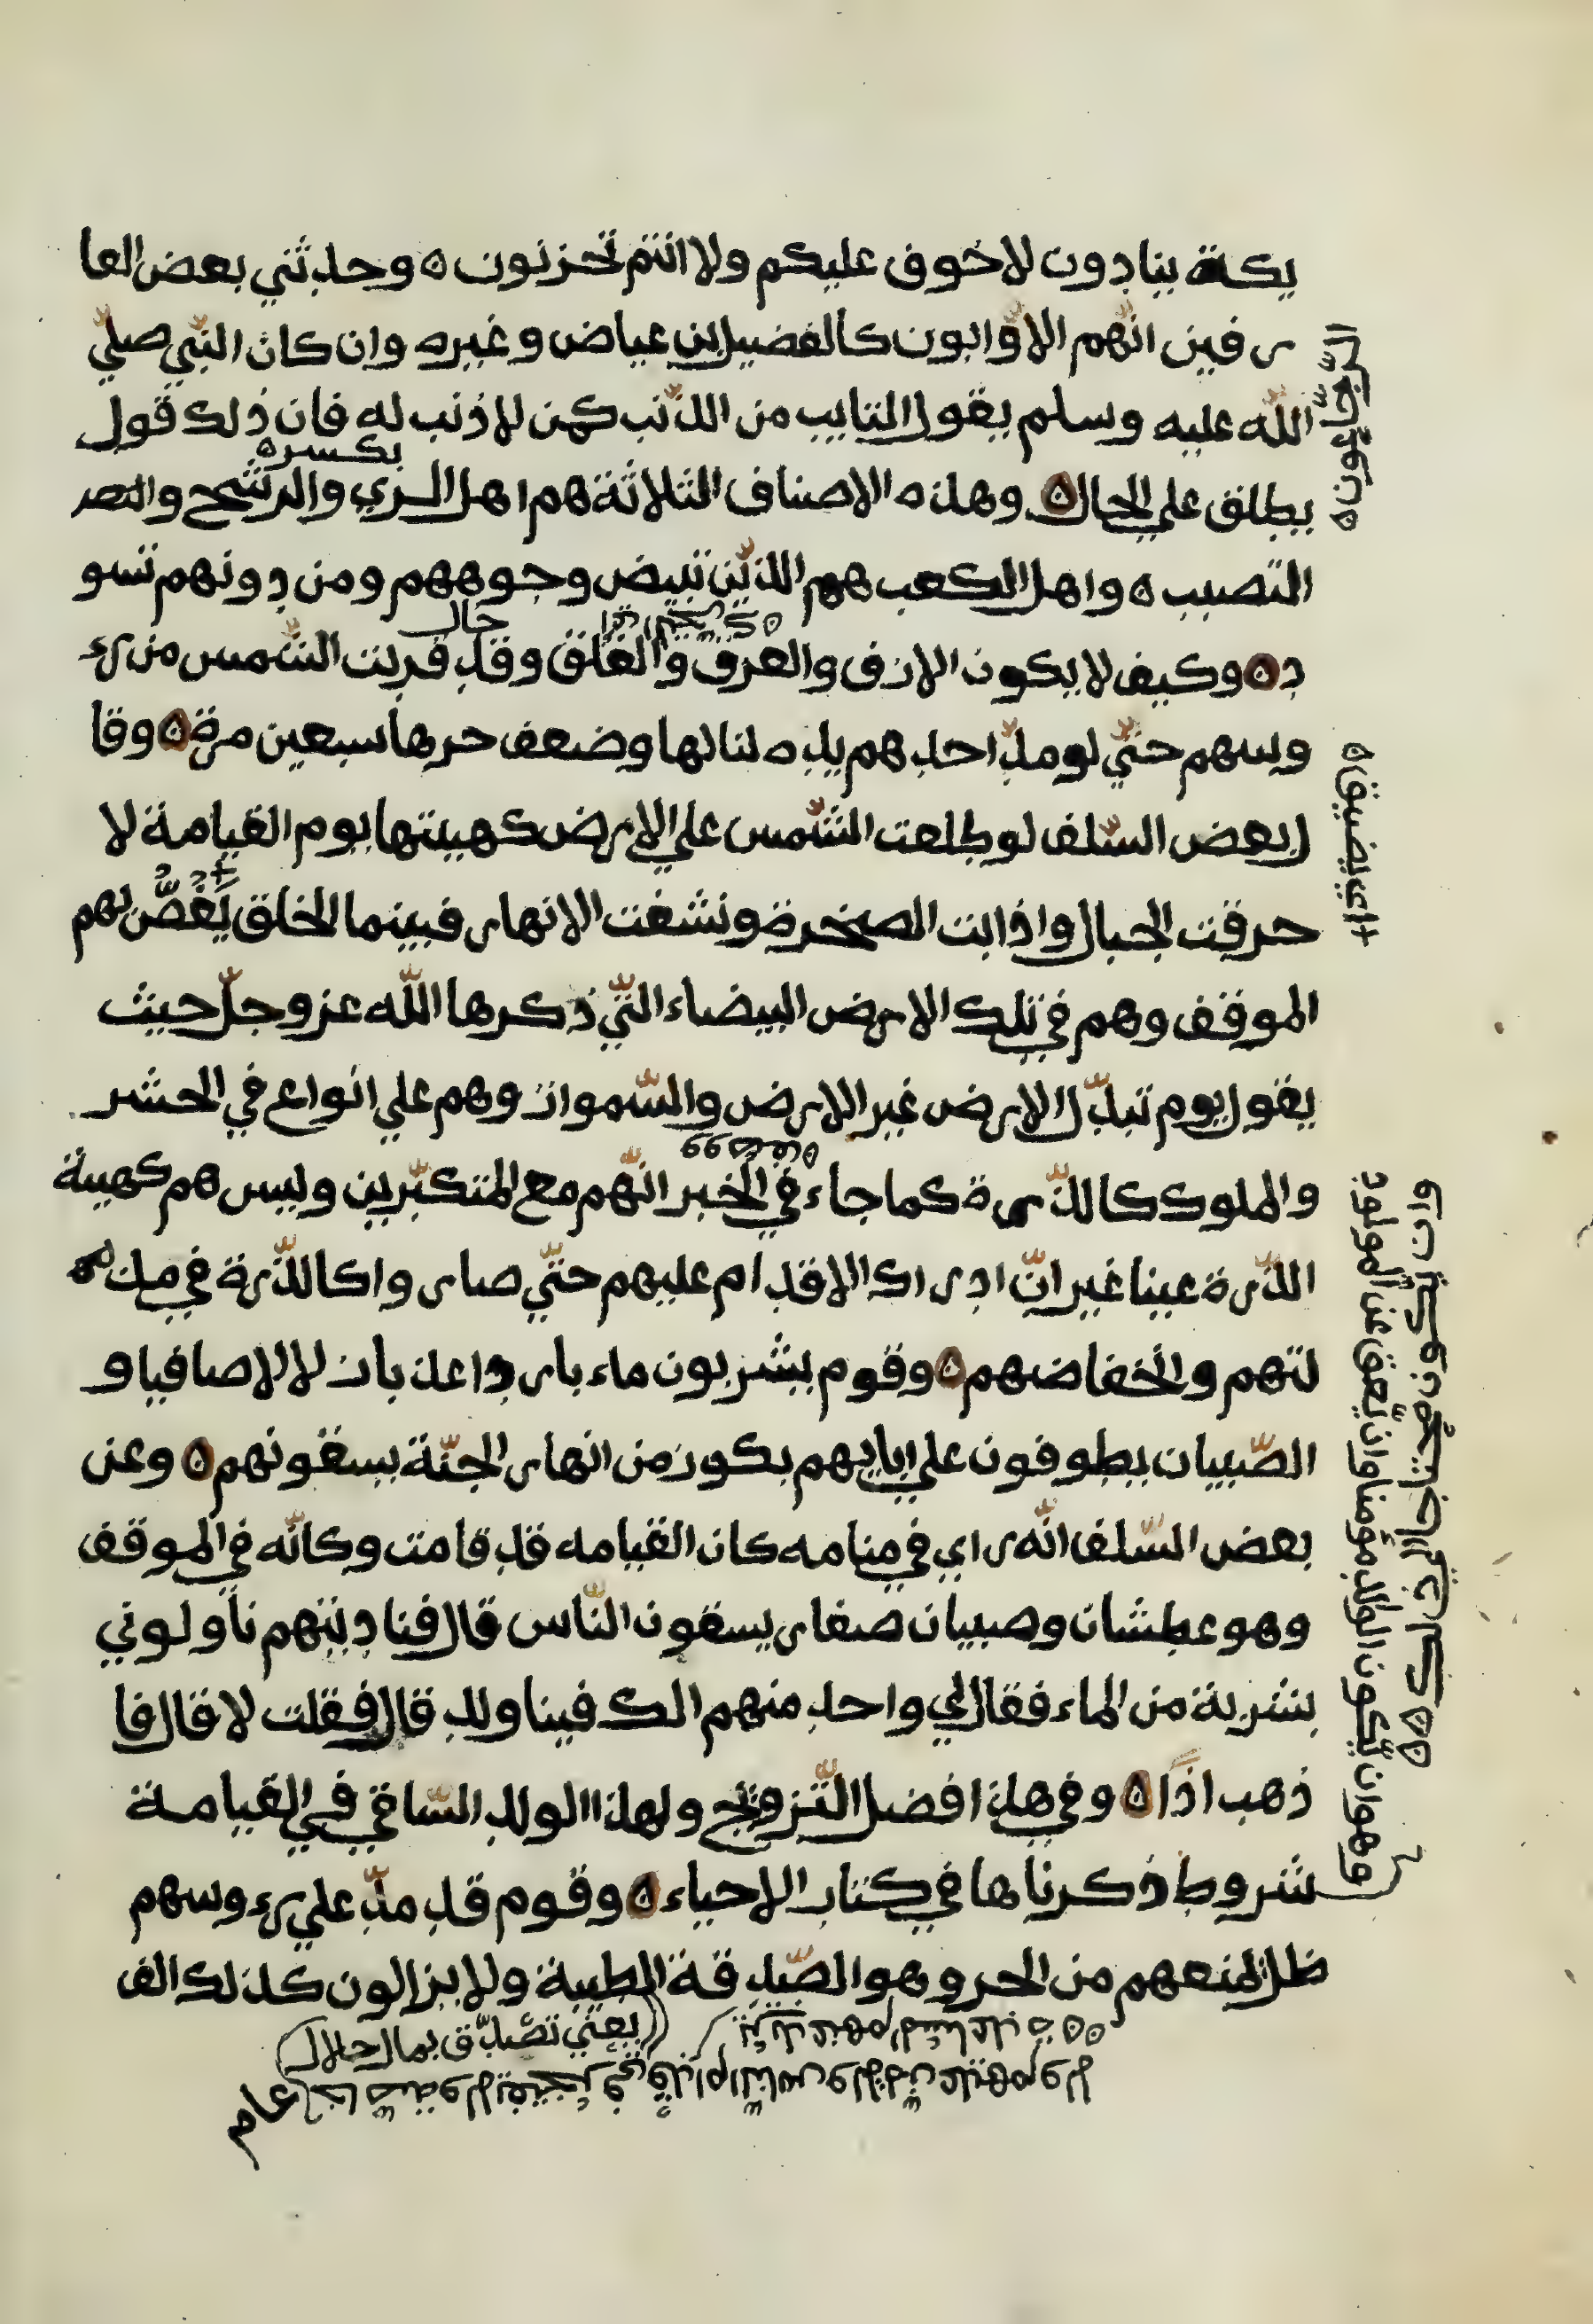 يكة ينادون لا خوف عليكم ولا انتم تحزنون ه وحدثني بعض العا
رفين انّهم الاوّابون كالفضيل ابن عياض وغيره وان كان النّبي صلّي
اللّه عليه وسلم يقول التايب من الذّنب كمن لا ذنب له فان ذلك قول
بكسره
يطلق علي الحال ه وهذه الاصناف الثلاثة هم اهل الري والرشح والتصر
التصبب ه واهل الكعب هم الذيّن تبيض وجوههم ومن دونهم تسو
حال
د ه وكيف لا يكون الارق والعرق والقلق وقد قربت الشّمس من رء
وسهم حتّي لو مدّ احدهم يده لنالها وضعف حرها سبعين مرة ه وقا
ل بعض السّلف لو طلعت الشّمس علي الارض كهيئتها يوم القيامة لا
حرقت الجبال واذابت الصخرة ونشفت الانهار فبينما الخلق يَغُصُّ بهم
الموقف وهم في تلك الارض البيضاء التّي ذكرها اللّه عز وجلّ حيث
يقول يوم تبدّل الارض غير الارض والسّموات وهم علي انواع في الحشر
والملوك كالذّرة كما جاء في الخبر انّهم مع المتكبّرين وليس هم كهيئة
الذّرة عينا غير انّ ادراك الاقدام عليهم حتّي صاروا كالذّرة في مذ
لتهم وانخفاضهم ه وقوم يشربون ماء باردا عذبا زلالا صافيا و
الصّبيان يطوفون علي ابايهم بكوز من انهار الجنّة يسقونهم ه وعن
بعض السّلف انّه راي في منامه كان القيامه قد قامت وكانّه في الموقف
وهو عطشان وصبيان صغار يسقون النّاس قال فناديتهم ناولوني
بشربة من الماء فقال لي واحد منهم الك فينا ولد قال فقلت لا قال فا
ذهب اذًا ه وفي هذا فضل التّزويج ولهذا الولد السّاقي في القيامة
شروط ذكرناها في كتاب الاحياء ه وقوم قد مدّ علي رءوسهم
ظل لمنعهم من الحر وهو الصّدقة الطيبة ولا يزالون كذلك الف
يعني تصّدّق بمال حلال
عام
اي يضيق ه
وهو ان يكون الولد مؤمنا وان يعق عن المولود